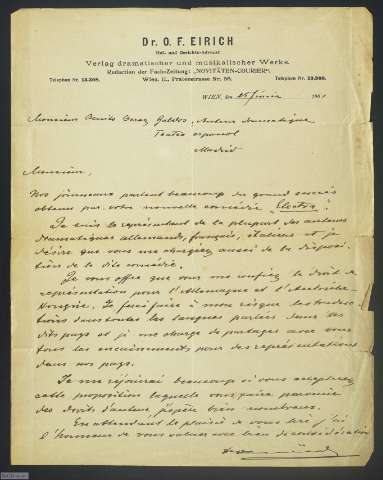 Dr. O. F. EIRICH
Hof- und Gerichts-Advocat
Verlag dramatischer und musikalischer Werke.
Redaction der Fach-Zeitung: „NOVITÄTEN-COURIER“
Telephon Nr. Wien, II., Praterstrasse Nr. 38. Telephon Nr.
WIEN, den 15 février 1901
Monsieur Benito Perez Galdós, Auteur dramatique
Teatro espanol
Madrid
Monsieur,
Nos journeaux parlent beaucoup du grand succès
obtenu par votre nouvelle comédie „Electra“.
Je suis le représentant de la plupart des auteurs
dramatiques allemands, français, italiens et je
désire que vous me chargiez aussi de la disposi-
tion de la dite comédie.
Je vous offre que vous me confiez le droit de
représentation pour l'Allemagne et l'Autriche-
Hongrie. Je ferai faire à mon risque les traduc-
tions dans toutes les langues parlées dans les
dits pays et je me charge de partager avec vous
tous les encaissements pour des représentations
dans nos pays.
Je me réjouirai beaucoup si vous acceptez
cette proposition laquelle vous faire parvenir
des droits d'auteur j'espère bien nombreux.
En attendant le plaisir de vous lire j'ai
l'honneur de vous saluer avec de considération